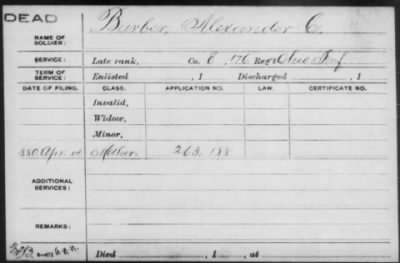 DEAD
NAME OF SOLDIER: Barber, Alexander C.
SERVICE: Late rank, Co. E, 176 Reg't Ohio Inf
TERM OF SERVICE: Enlisted , 1 Discharged , 1
DATE OF FILING. CLASS. APPLICATION NO. LAW. CERTIFICATE NO.
Invalid,
Widow,
Minor,
1880 Apr. 14 Mother 263.188
ADDITIONAL SERVICES:
REMARKS:
Died , 1 , at